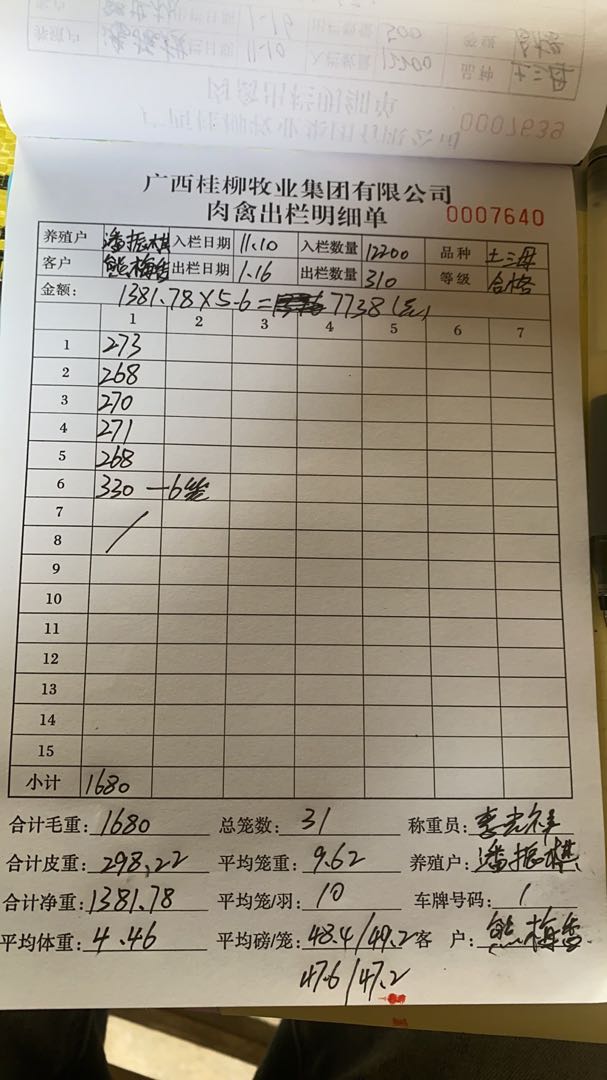 0007639
广西桂柳牧业集团有限公司
肉禽出栏明细单 0007640
养殖户 潘振棋 入栏日期 11.10 入栏数量 12200 品种 土三母
客户 熊梅香 出栏日期 1.16 出栏数量 310 等级 合格
金额: 1381.78×5.6= 7738(元)
1 2 3 4 5 6 7
1 273
2 268
3 270
4 271
5 268
6 330 —6笼
7
8
9
10
11
12
13
14
15
小计 1680
合计毛重: 1680 总笼数: 31 称重员:
合计皮重: 298.22 平均笼重: 9.62 养殖户: 潘振棋
合计净重: 1381.78 平均笼/羽: 10 车牌号码: 1
平均体重: 4.46 平均磅/笼: 48.4/49.2 客 户: 熊梅香
47.6/47.2